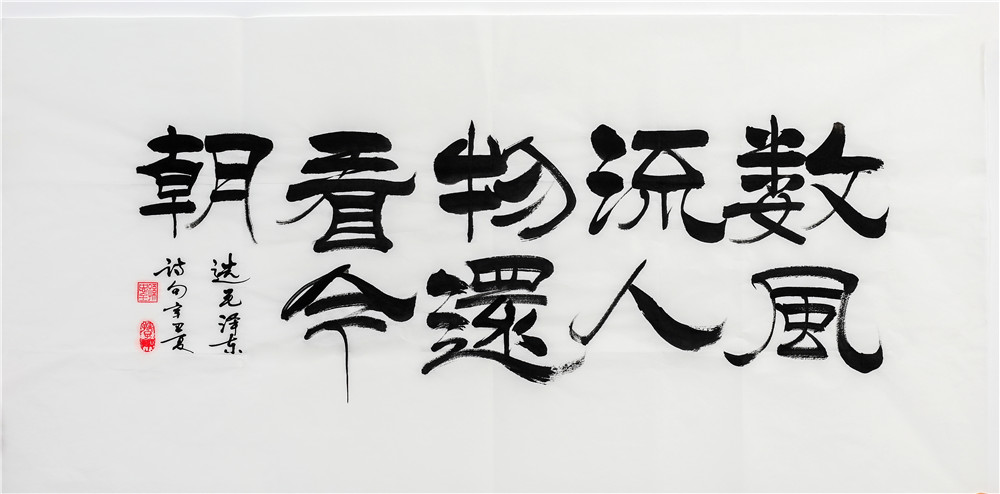 数风
流人
物還
看今
朝
选毛泽东
诗句辛丑夏